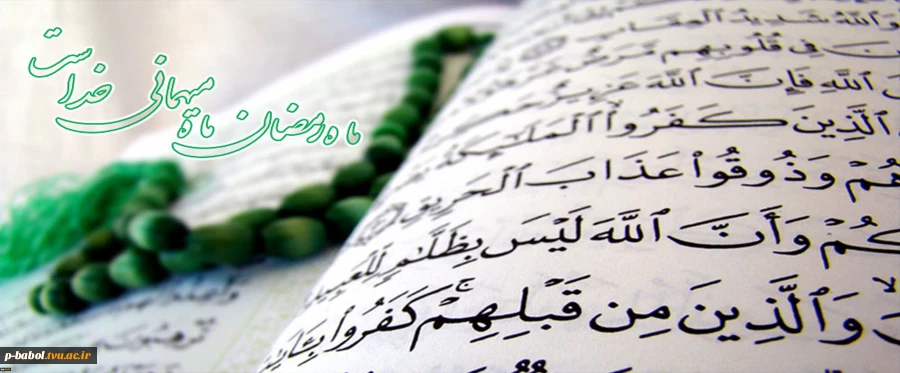 ماه رمضان ماه میهمانی خداست
وَٱللَّهُ شَدِيدُ ٱلْعِقَابِ
فِي قُلُوبِهِم مَّرَضٌ
ٱللَّهِ فَإِنَّ ٱللَّهَ عَزِيزٌ
ٱلَّذِينَ كَفَرُواْ ٱلْمَلَٰٓئِكَةُ
هُمْ وَذُوقُواْ عَذَابَ ٱلْحَرِيقِ
كُمْ وَأَنَّ ٱللَّهَ لَيْسَ بِظَلَّٰمٍ لِّلْعَبِيدِ
وَٱلَّذِينَ مِن قَبْلِهِمْ ۚ كَفَرُواْ بِـَٔايَٰتِ
p-babol.tvu.ac.ir